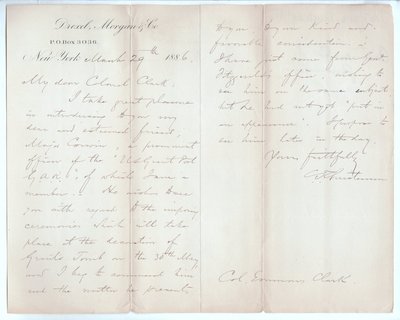 Drexel, Morgan & Co.
P.O. Box 3036.
New York March 29th 1886.
My dear Colonel Clark:
I take great pleasure
in introducing to you my
dear and esteemed friend,
Major Corwin, a prominent
officer of the "U.S. Grant Post
G.A.R.", of which I am a
member. He wishes to see
you with regard to the imposing
ceremonies which will take
place at the decoration of
Grant's Tomb on the 30th May,
and I beg to commend him
and the matter he presents
to you to your kind and
favorable consideration.
I have just come from Genl.
Fitzgerald's office, wishing to
see him on the same subject
but he had not yet "put in
an appearance". I propose to
see him later in the day.
Yours faithfully
Col. Emmons Clark.